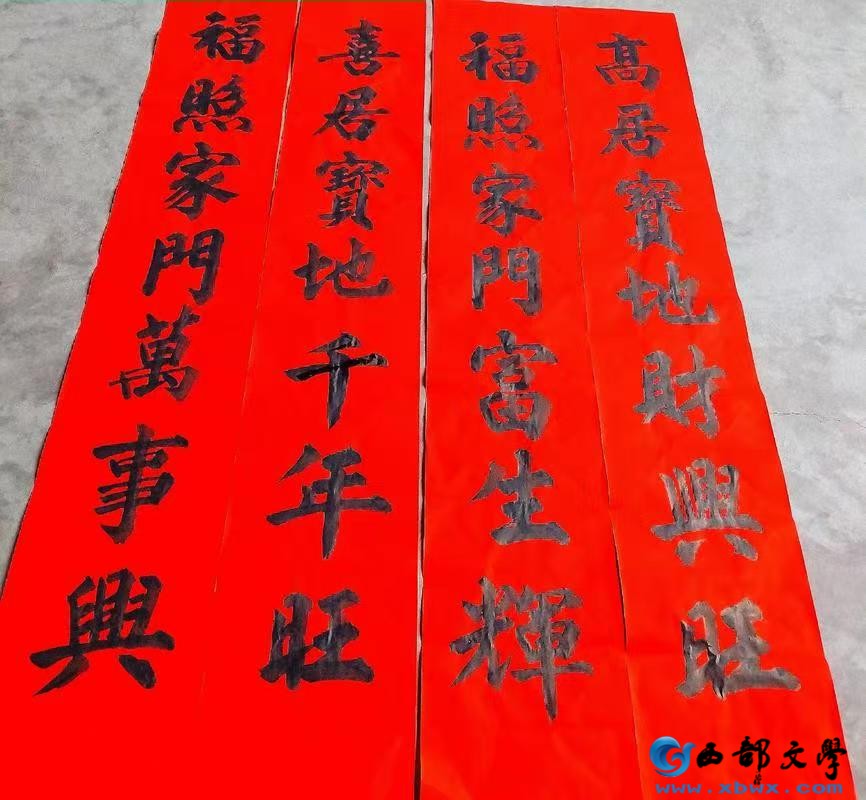 高居寶地財興旺
福照家門富生輝
喜居寶地千年旺
福照家門萬事興
西部文學
www.xbwx.com